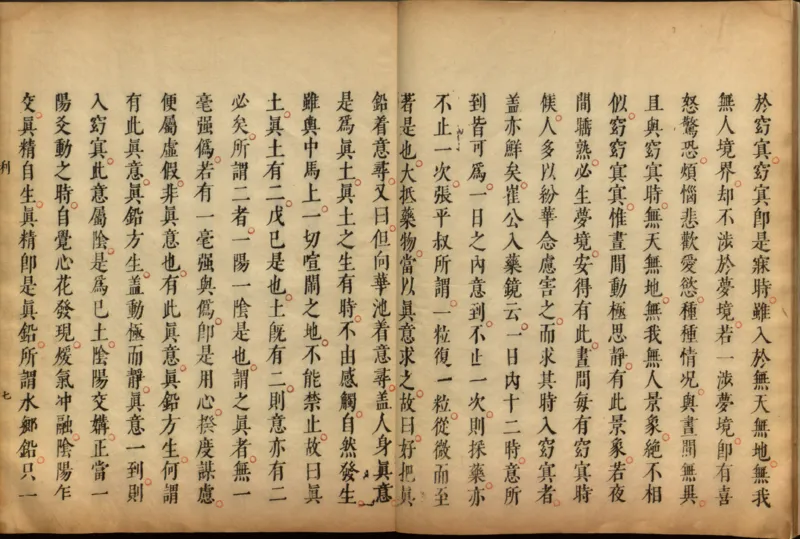 於窈冥窈冥卽是寐時雖入於無天無地無我
無人境界却不涉於夢境若一涉夢境卽有喜
怒驚恐煩惱悲歡愛慾種種情况與晝間無異
且與窈冥時無天無地無我無人景象絶不相
似窈窈冥冥惟晝間動極思靜有此景象若夜
間驕熟必生夢境安得有此晝間每有窈冥時
候人多以紛華念慮害之而求其時入窈冥者
盖亦鮮矣崔公入藥鏡云一日內十二時意所
到皆可爲一日之內意到不止一次則採藥亦
不止一次張平叔所謂一粒復一粒從微而至
著是也大抵藥物當以眞意求之故曰好把眞
鉛着意尋又曰但向華池着意尋盖人身眞意
是爲眞土眞土之生有時不由感觸自然發生
雖輿中馬上一切喧鬧之地不能禁止故曰眞
土眞土有二戊巳是也土旣有二則意亦有二
必矣所謂二者一陽一陰是也謂之眞者無一
毫强僞若有一毫强與僞卽是用心揆度謀慮
便屬虛假非眞意也有此眞意眞鉛方生何謂
有此眞意眞鉛方生盖動極而靜眞意一到則
入窈冥此意屬陰是爲巳土陰陽交媾正當一
陽爻動之時自覺心花發現煖氣冲融陰陽乍
交眞精自生眞精卽是眞鉛所謂水鄉鉛只一
利
七